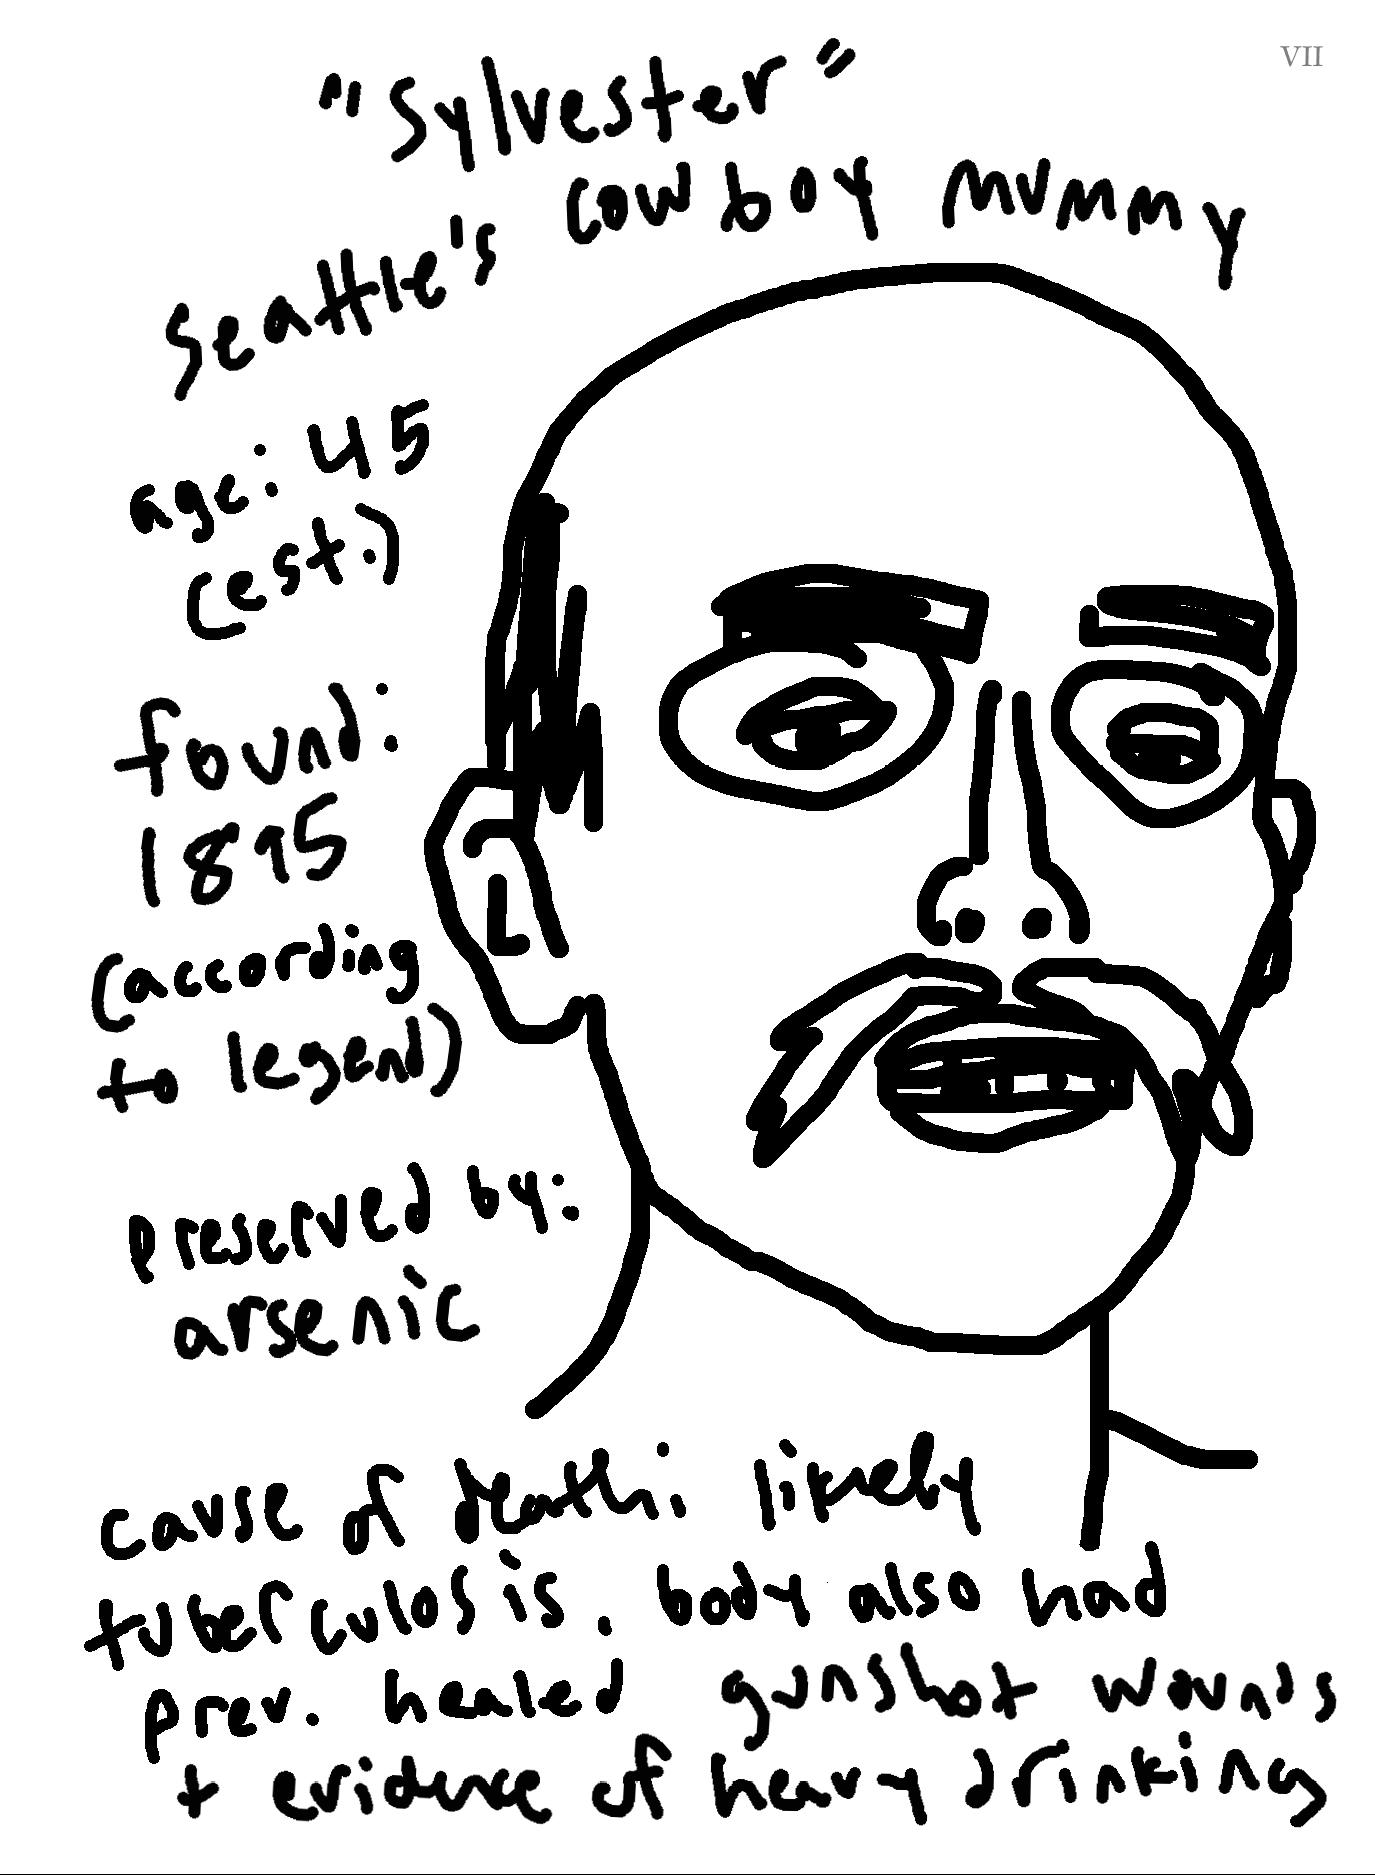 VII
"Sylvester"
Seattle's cowboy mummy
age: 45
(est.)
found:
1895
(according
to legend)
preserved by:
arsenic
cause of death: likely
tuberculosis. body also had
prev. healed gunshot wounds
+ evidence of heavy drinking